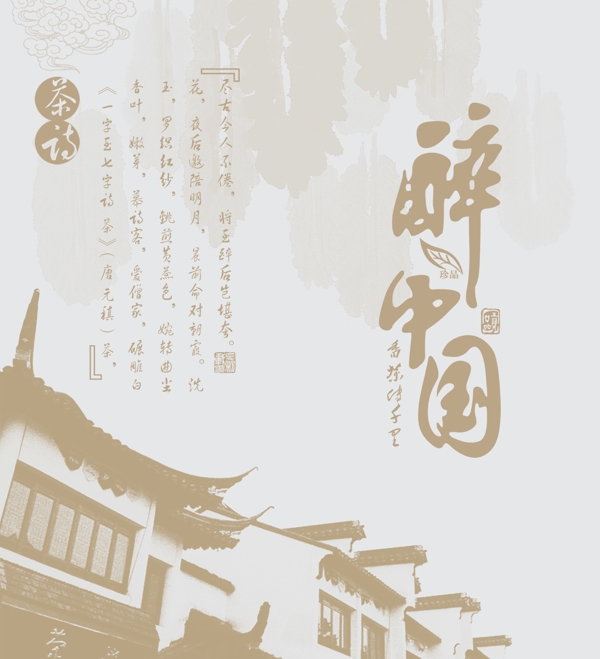 茶诗
《一字至七字诗 茶》（唐 元稹）茶，
香叶，嫩芽，慕诗客，爱僧家，碾雕白
玉，罗织红纱，铫煎黄蕊色，婉转曲尘
花，夜后邀陪明月，晨前命对朝霞。洗
尽古今人不倦，将至醉后岂堪夸。
醉中国
珍品
千里
茶